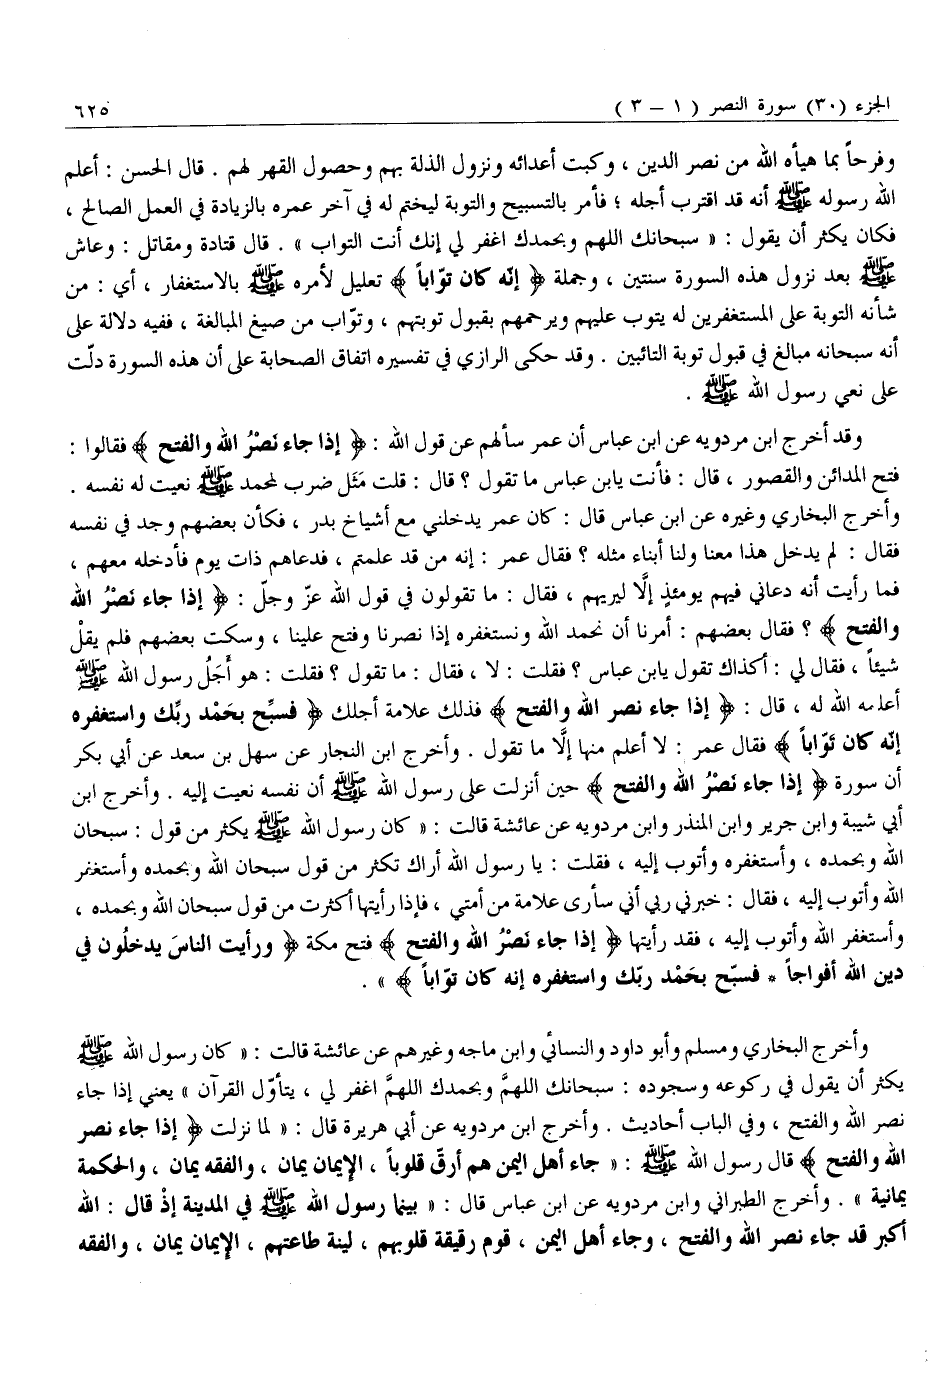 الجزء (٣٠) سورة النصر ( ١ – ٣ )
٦٢٥
وفرحاً بما هيأه الله من نصر الدين ، وكبت أعدائه ونزول الذلة بهم وحصول القهر لهم . قال الحسن : أعلم
الله رسوله ﷺ أنه قد اقترب أجله ؛ فأمر بالتسبيح والتوبة ليختم له في آخر عمره بالزيادة في العمل الصالح ،
فكان يكثر أن يقول : « سبحانك اللهم وبحمدك اغفر لي إنك أنت التواب » . قال قتادة ومقاتل : وعاش
ﷺ بعد نزول هذه السورة سنتين ، وجملة ﴿ إنّه كان توّاباً ﴾ تعليل لأمره ﷺ بالاستغفار ، أي : من
شأنه التوبة على المستغفرين له يتوب عليهم ويرحمهم بقبول توبتهم ، وتوّاب من صيغ المبالغة ، ففيه دلالة على
أنه سبحانه مبالغ في قبول توبة التائبين . وقد حكى الرازي في تفسيره اتفاق الصحابة على أن هذه السورة دلّت
على نعي رسول الله ﷺ .
وقد أخرج ابن مردويه عن ابن عباس أن عمر سألهم عن قول الله : ﴿ إذا جاء نَصْرُ الله والفتح ﴾ فقالوا :
فتح المدائن والقصور ، قال : فأنت يابن عباس ما تقول ؟ قال : قلت مَثَل ضرب لمحمد ﷺ نعيت له نفسه .
وأخرج البخاري وغيره عن ابن عباس قال : كان عمر يدخلني مع أشياخ بدر ، فكأن بعضهم وجد في نفسه
فقال : لم يدخل هذا معنا ولنا أبناء مثله ؟ فقال عمر : إنه من قد علمتم ، فدعاهم ذات يوم فأدخله معهم ،
فما رأيت أنه دعاني فيهم يومئذٍ إلَّا ليريهم ، فقال : ما تقولون في قول الله عزّ وجلّ : ﴿ إذا جاء نَصْرُ الله
والفتح ﴾ ؟ فقال بعضهم : أمرنا أن نحمد الله ونستغفره إذا نصرنا وفتح علينا ، وسكت بعضهم فلم يقلْ
شيئاً ، فقال لي : أكذاك تقول يابن عباس ؟ فقلت : لا ، فقال : ما تقول ؟ فقلت : هو أَجَلُ رسول الله ﷺ
أعلمه الله له ، قال : ﴿ إذا جاء نصر الله والفتح ﴾ فذلك علامة أجلك ﴿ فسبِّح بحَمْد ربِّك واستغفره
إنّه كان تَوّاباً ﴾ فقال عمر : لا أعلم منها إلَّا ما تقول . وأخرج ابن النجار عن سهل بن سعد عن أبي بكر
أن سورة ﴿ إذا جاء نَصْرُ الله والفتح ﴾ حين أنزلت على رسول الله ﷺ أن نفسه نعيت إليه . وأخرج ابن
أبي شيبة وابن جرير وابن المنذر وابن مردويه عن عائشة قالت : « كان رسول الله ﷺ يكثر من قول : سبحان
الله وبحمده ، وأستغفره وأتوب إليه ، فقلت : يا رسول الله أراك تكثر من قول سبحان الله وبحمده وأستغفر
الله وأتوب إليه ، فقال : خبرني ربي أني سأرى علامة من أمتي ، فإذا رأيتها أكثرت من قول سبحان الله وبحمده ،
وأستغفر الله وأتوب إليه ، فقد رأيتها ﴿ إذا جاء نَصْرُ الله والفتح ﴾ فتح مكة ﴿ ورأيت الناسَ يدخلُون في
دين الله أفواجاً * فسبّح بحَمْد ربّك واستغفره إنه كان توّاباً ﴾ » .
وأخرج البخاري ومسلم وأبو داود والنسائي وابن ماجه وغيرهم عن عائشة قالت : « كان رسول الله ﷺ
يكثر أن يقول في ركوعه وسجوده : سبحانك اللهمَّ وبحمدك اللهمَّ اغفر لي ، يتأوّل القرآن » يعني إذا جاء
نصر الله والفتح ، وفي الباب أحاديث . وأخرج ابن مردويه عن أبي هريرة قال : « لما نزلت ﴿ إذا جاء نصر
الله والفتح ﴾ قال رسول الله ﷺ : « جاء أهل اليمن هم أرقّ قلوباً ، الإيمان يمان ، والفقه يمان ، والحكمة
يمانية » . وأخرج الطبراني وابن مردويه عن ابن عباس قال : « بينما رسول الله ﷺ في المدينة إذْ قال : الله
أكبر قد جاء نصر الله والفتح ، وجاء أهل اليمن ، قوم رقيقة قلوبهم ، لينة طاعتهم ، الإيمان يمان ، والفقه